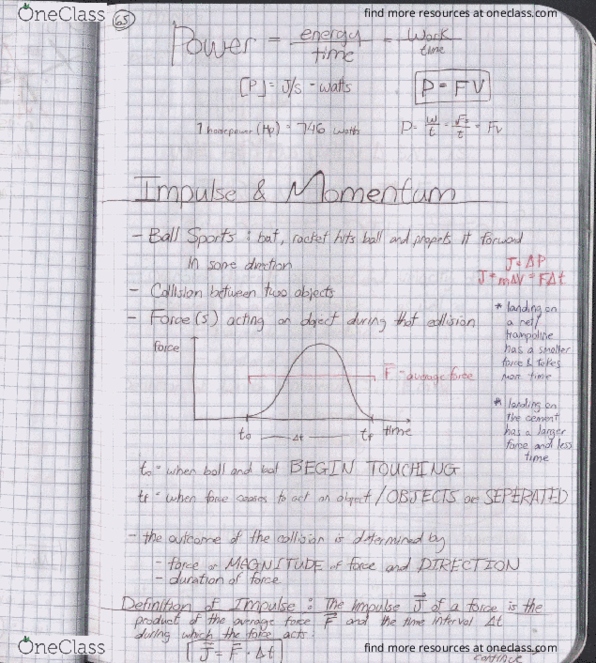 OneClass
find more resources at oneclass.com
65
Power = energy/time = Work/time
[P] = J/s - watts
P = FV
1 horsepower (Hp) = 746 watts
P = W/t = Fs/t = Fv
Impulse & Momentum
- Ball Sports : bat, rocket hits ball and propels it forward
in some direction
J = ΔP
J = mΔV = FΔt
- Collision between two objects
- Force(s) acting on object during that collision
* landing on
a net/
trampoline
has a smaller
force & takes
more time
force
F - average force
* landing on
the cement
has a larger
force and less
time
to
Δt
tf
time
to = when ball and bat BEGIN TOUCHING
tf = when force ceases to act on object / OBJECTS are SEPERATED
- the outcome of the collision is determined by
- force or MAGNITUDE of force and DIRECTION
- duration of force
Definition of Impulse : The impulse J of a force is the
product of the average force F and the time interval Δt
during which the force acts:
J = F · Δt
continue
OneClass
find more resources at oneclass.com